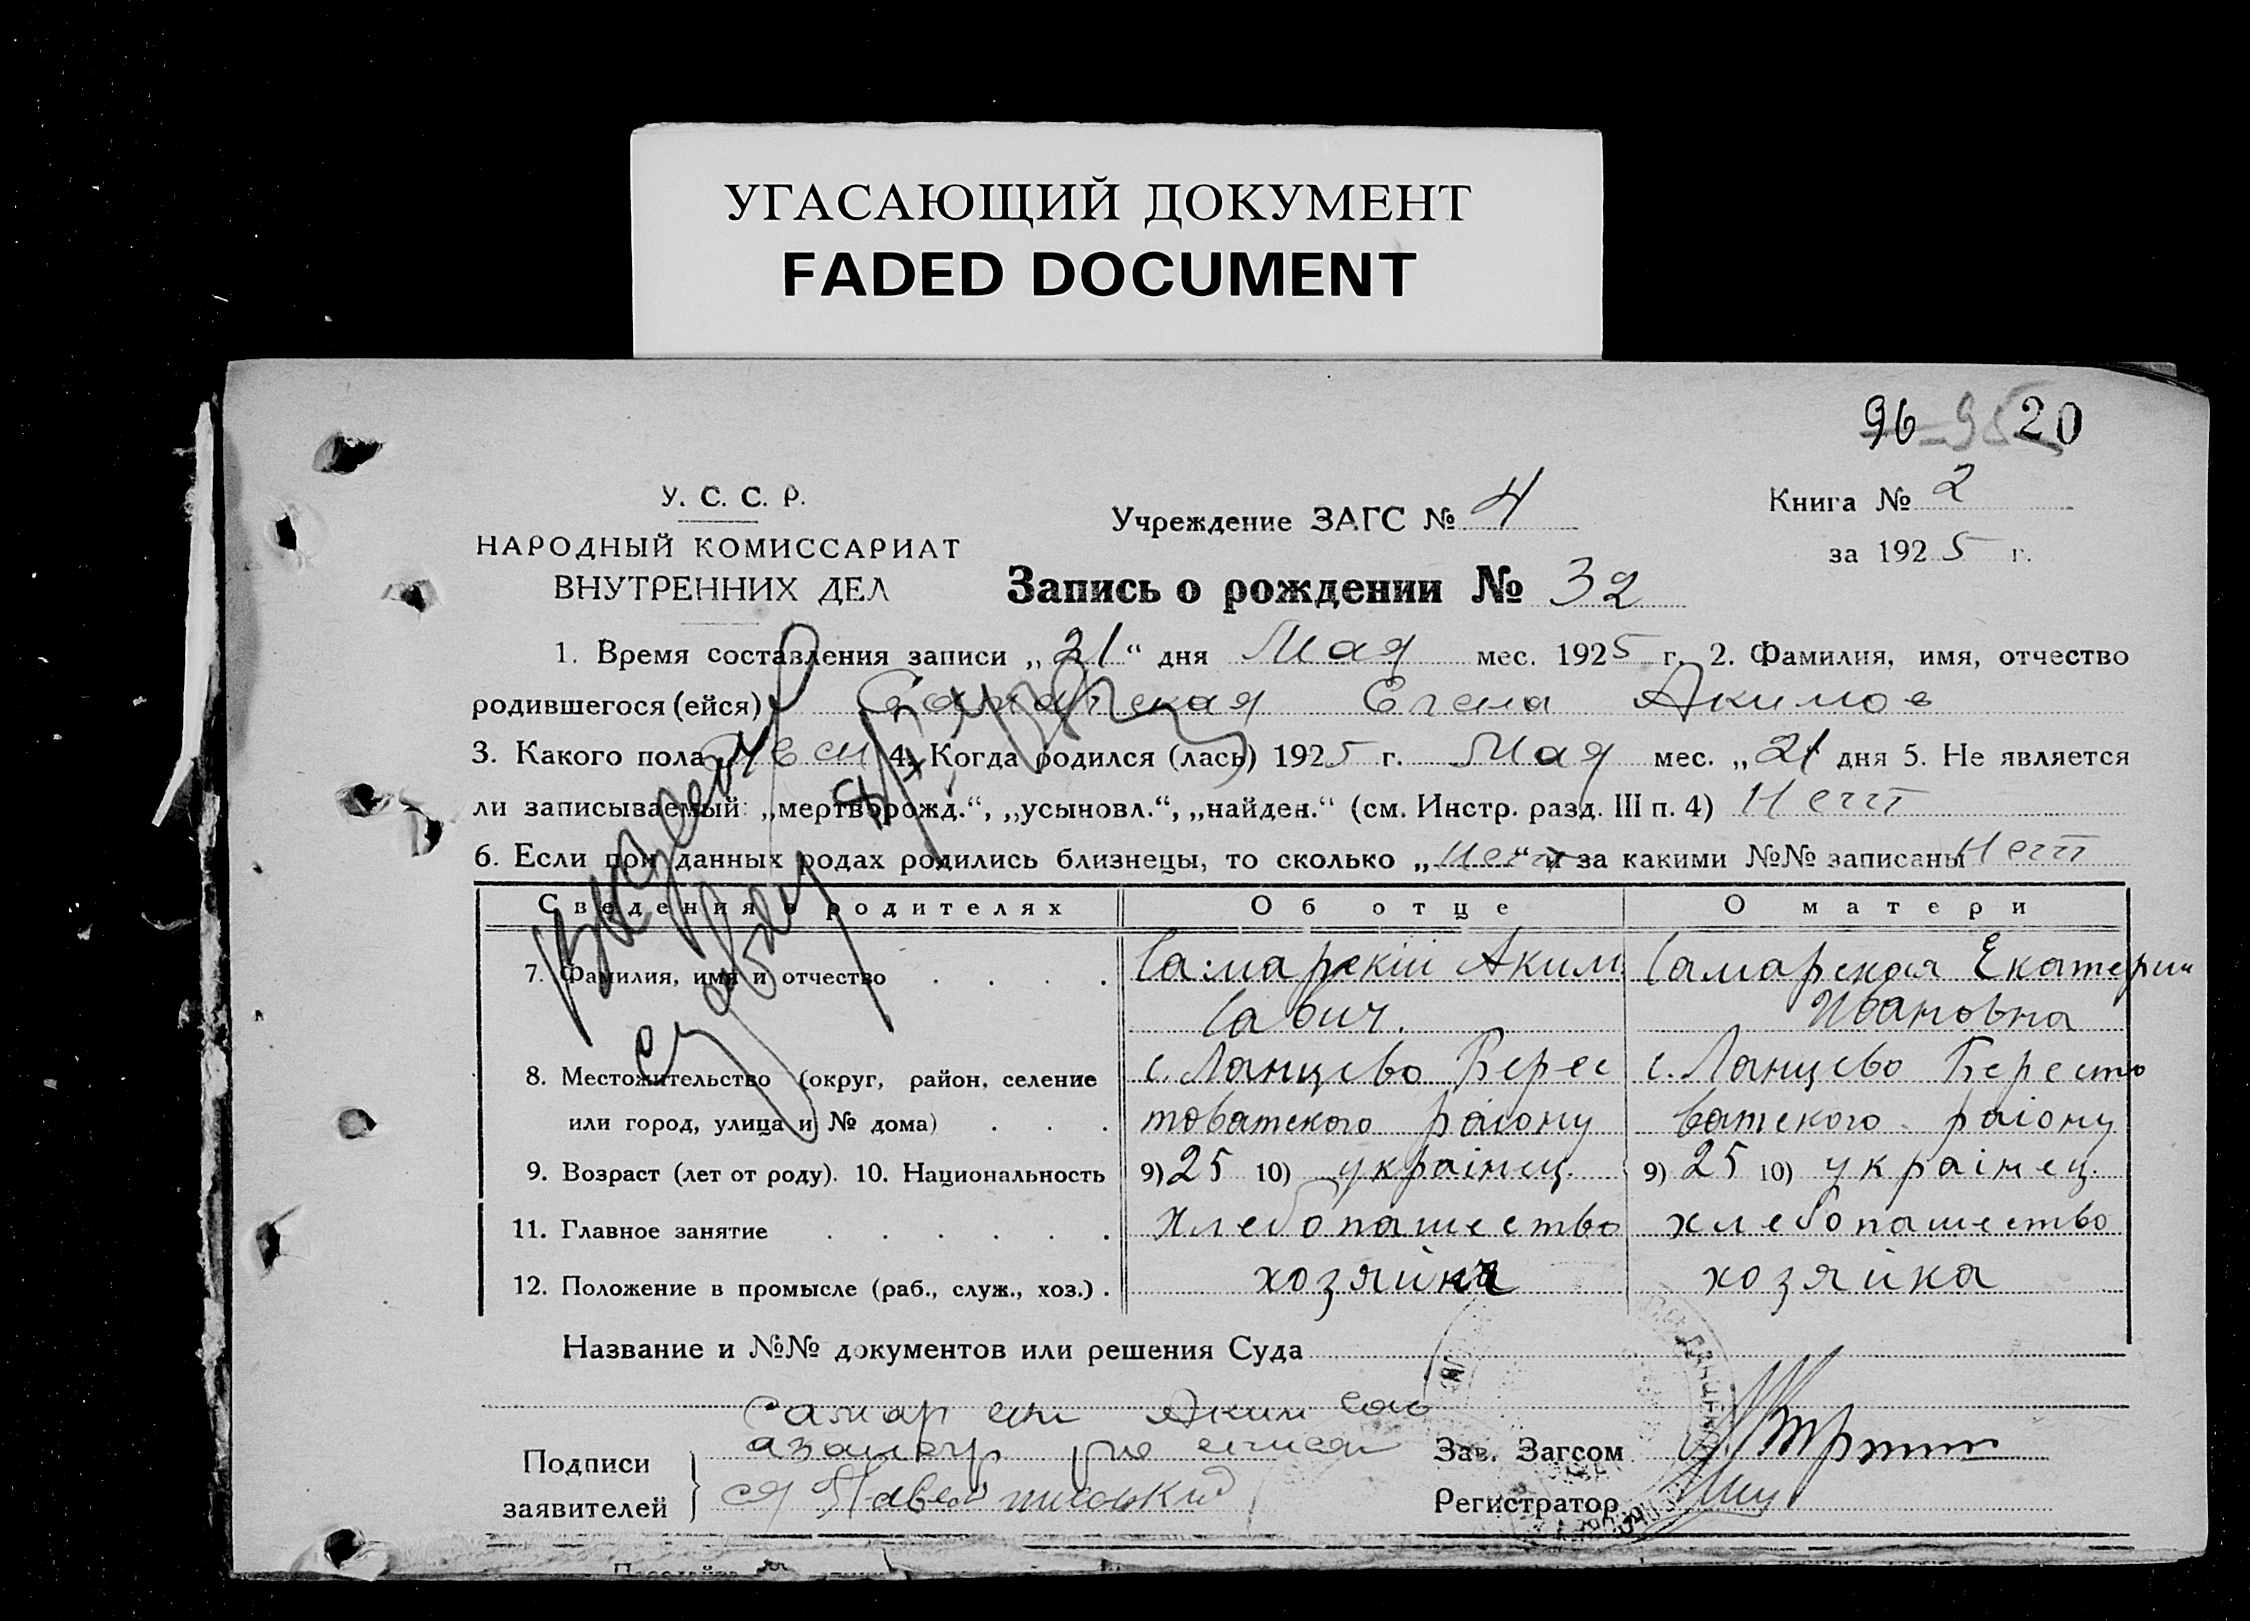 УГАСАЮЩИЙ ДОКУМЕНТ
FADED DOCUMENT
96 95 20
У. С. С. Р.
НАРОДНЫЙ КОМИССАРИАТ
ВНУТРЕННИХ ДЕЛ
Учреждение ЗАГС № 4
Книга № 2
за 1925 г.
Запись о рождении № 32
1. Время составления записи „21“ дня Мая мес. 1925 г. 2. Фамилия, имя, отчество
родившегося (ейся) Самарская Елена Акимов
3. Какого пола жен 4. Когда родился (лась) 1925 г. Мая мес. „21 дня 5. Не является
ли записываемый: „мертворожд.“, „усыновл.“, „найден.“ (см. Инстр. разд. III п. 4) Нетт
6. Если при данных родах родились близнецы, то сколько „нетт“ и за какими №№ записаны Нетт
Сведения о родителях Об отце О матери
7. Фамилия, имя и отчество . . . . Самарскій Аким. Самарская Екатерин
Савич. Ивановна
8. Местожительство (округ, район, селение с. Ланцево Берес с. Ланцево Бересто
или город, улица и № дома) . . . товатского раіону ватского раіону
9. Возраст (лет от роду). 10. Национальность 9) 25 10) украінец. 9) 25 10) украінец.
11. Главное занятие . . . . . . хлебопашество хлебопашество
12. Положение в промысле (раб., служ., хоз.) . хозяин хозяйка
Название и №№ документов или решения Суда
Самар Аким Сав
Подписи
заявителей
Павел
Зав. Загсом
Регистратор